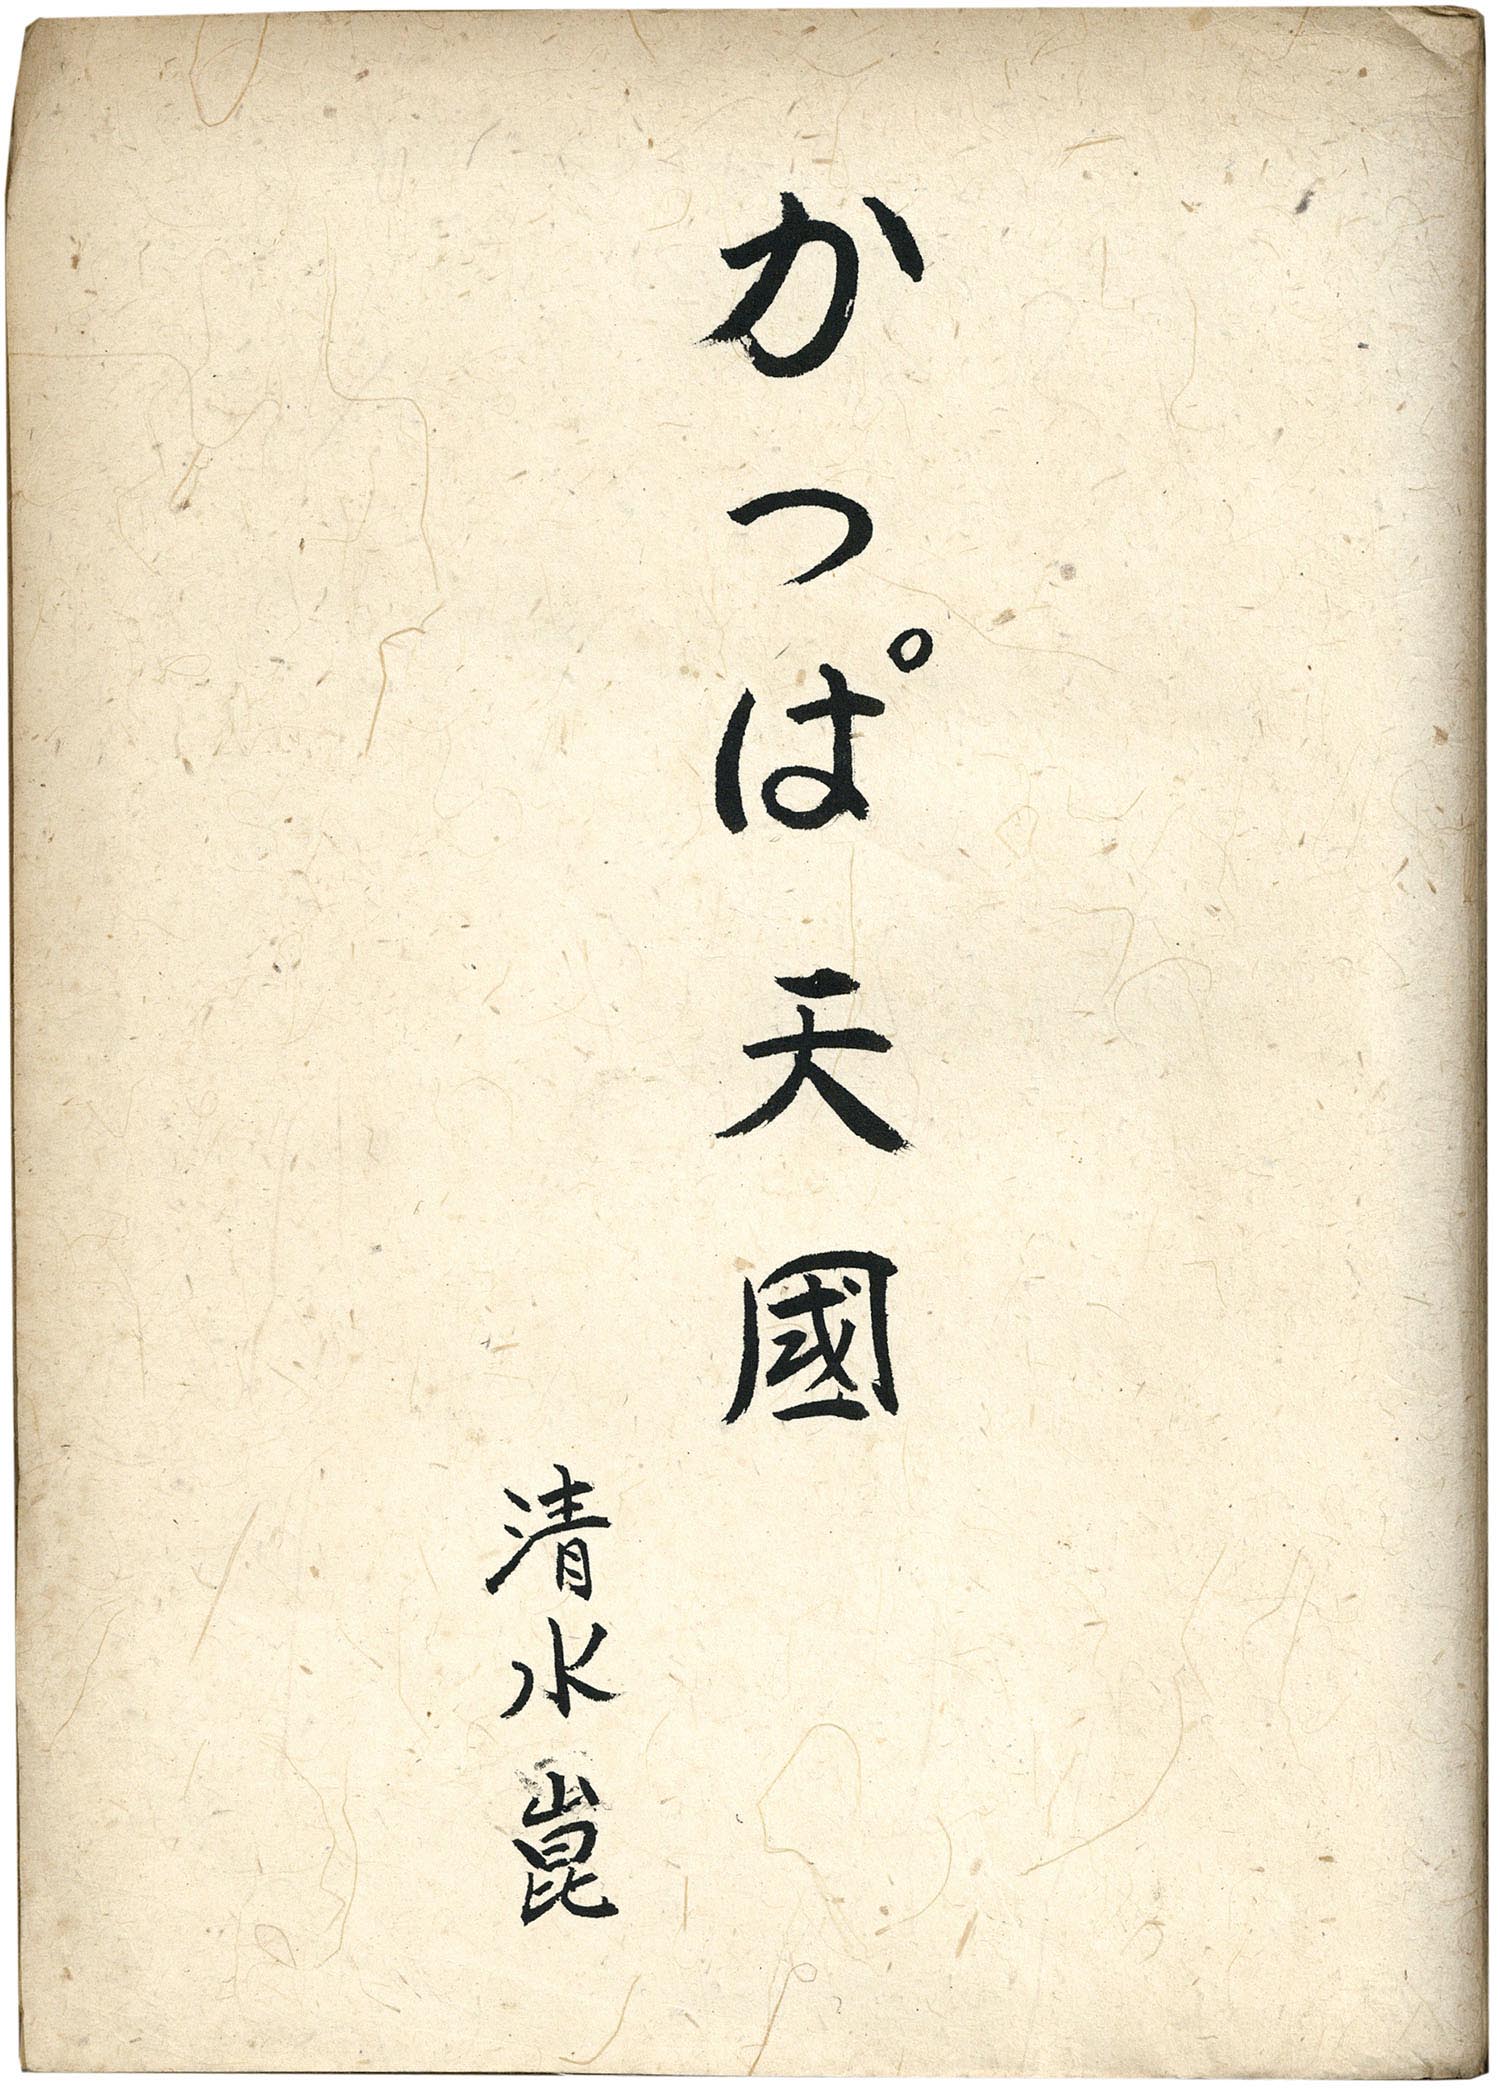 かっぱ天國
清水崑